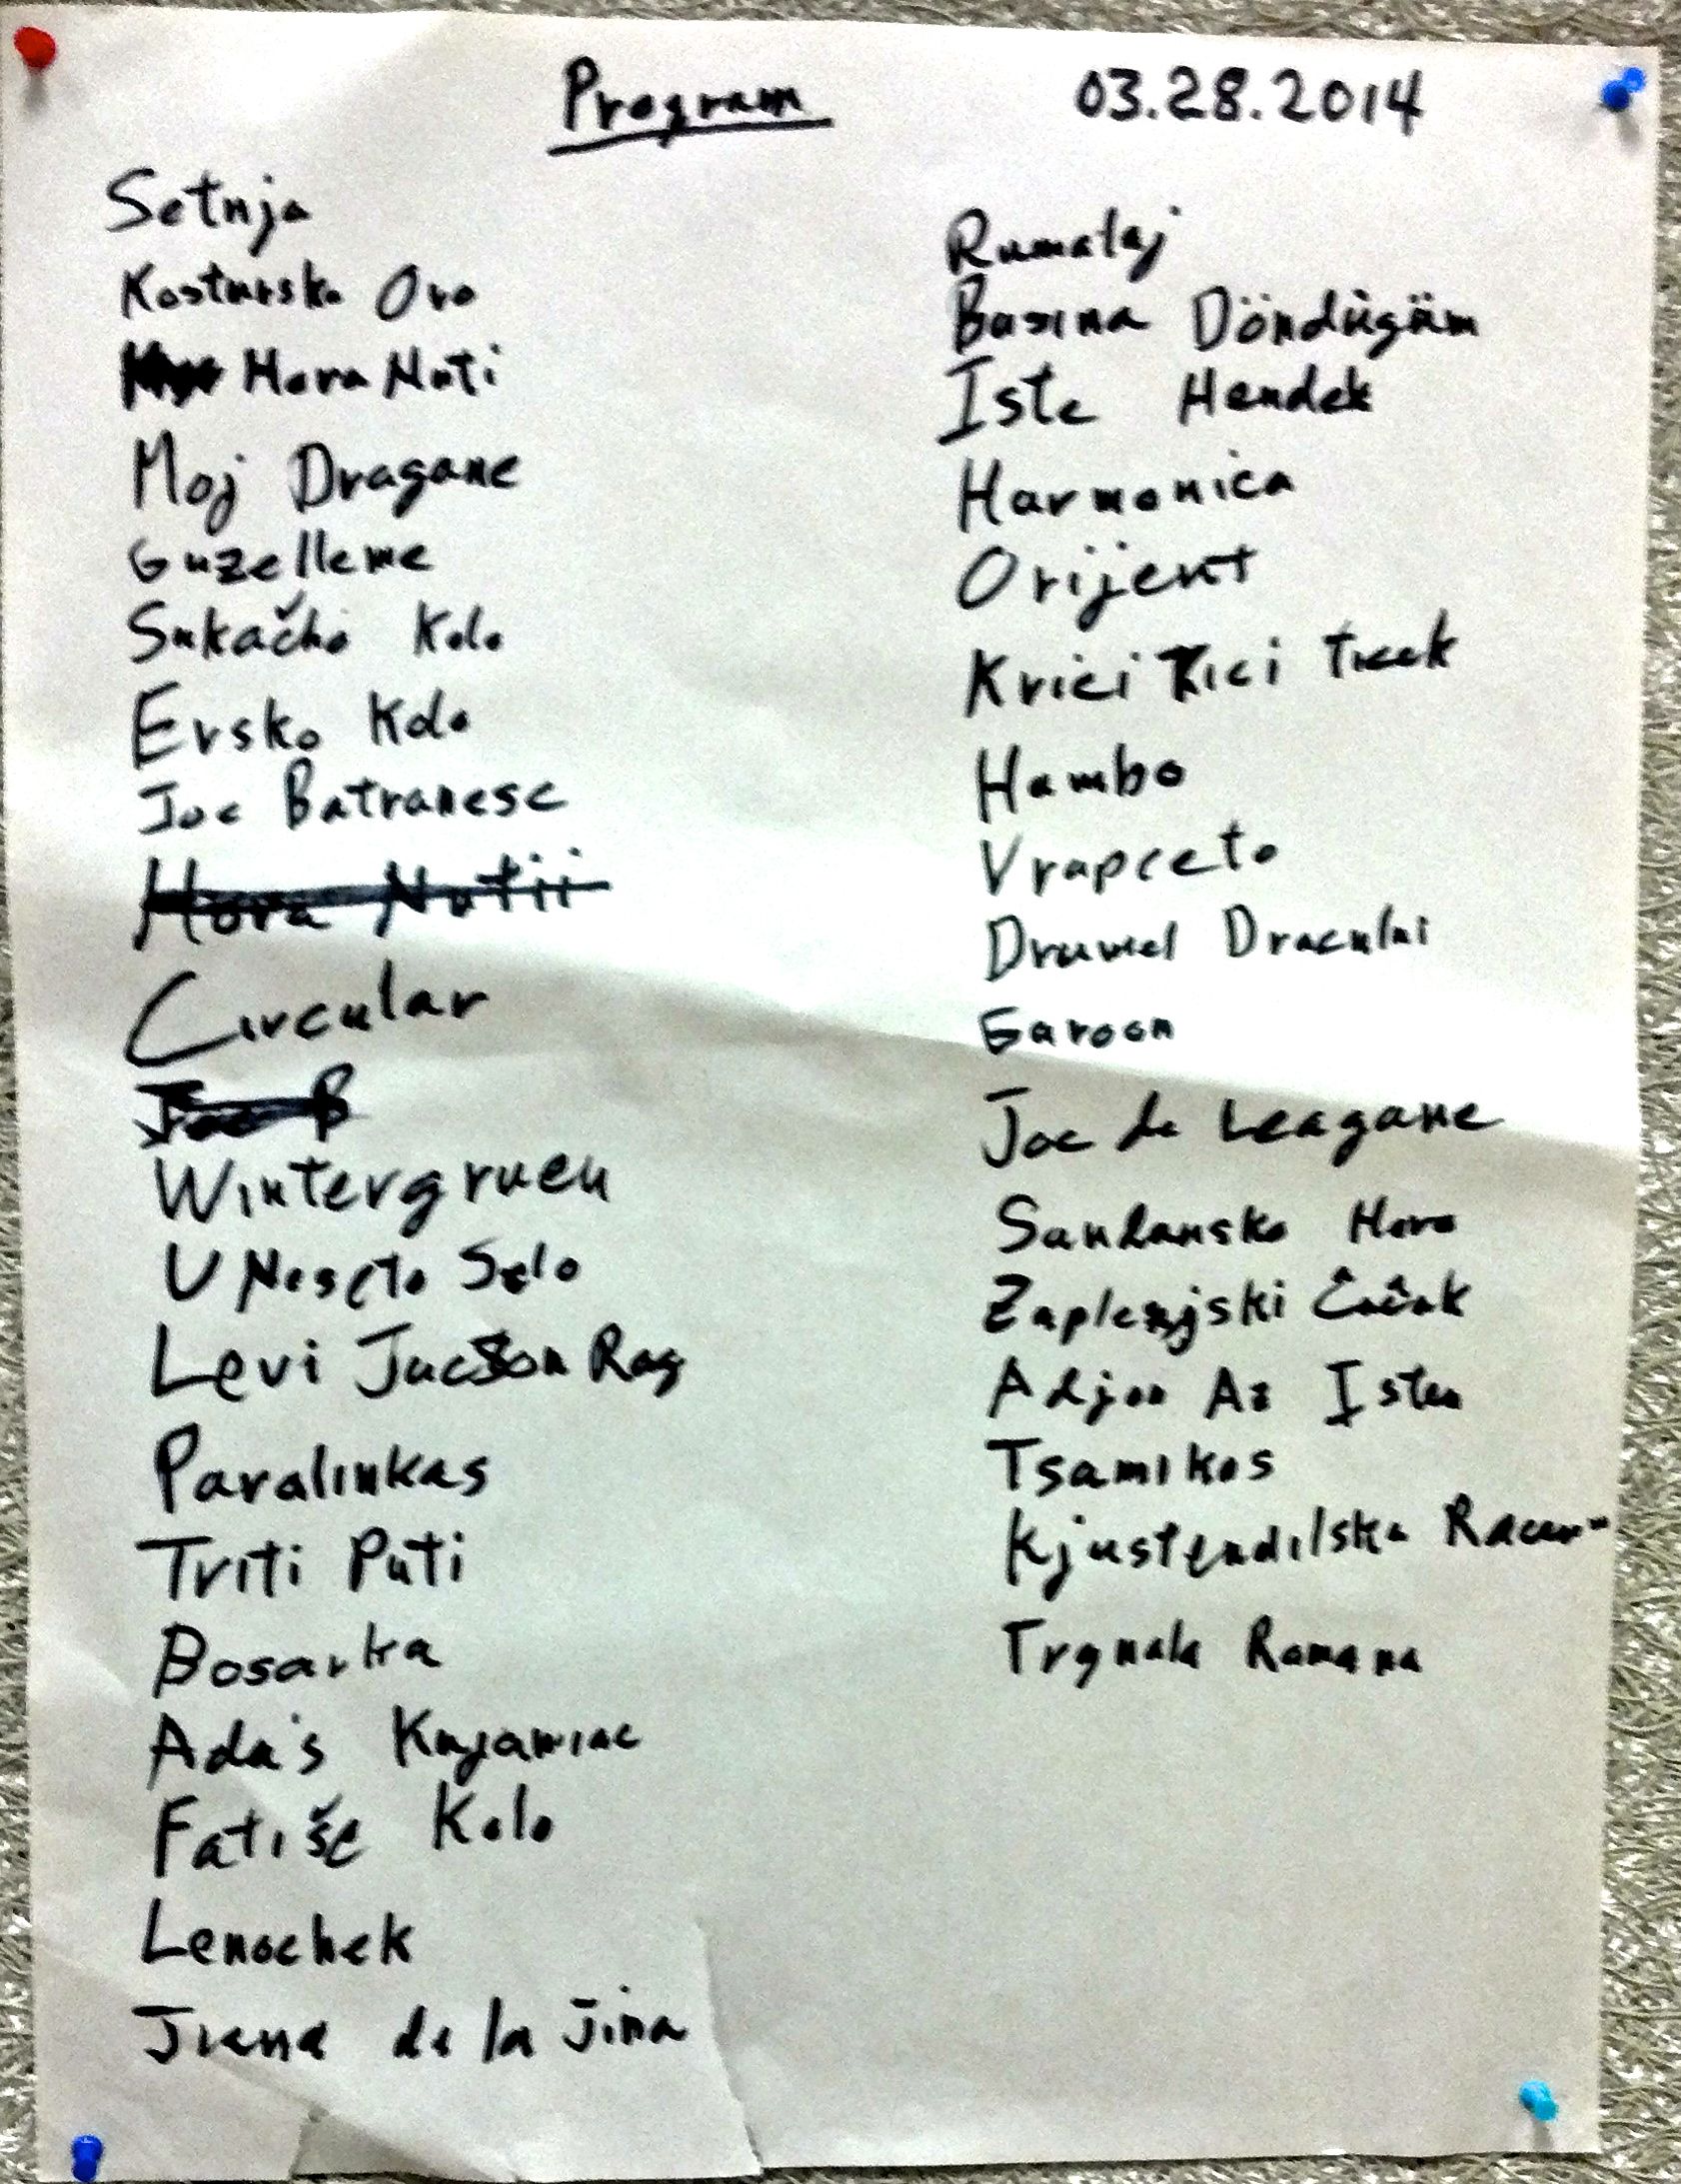 Program
03.28.2014
Setnja
Kostursko Oro
Hora Nuti
Moj Dragane
Guzelleme
Sukačko Kolo
Ersko Kolo
Joc Batranesc
Hora Nutii
Circular
Joc B
Wintergruen
U Neseto Selo
Levi Jackson Rag
Paralinkas
Triti Puti
Bosarka
Ada's Kujawiac
Fatiše Kolo
Lenochek
Jiena de la Jina
Rumelaj
Basina Döndügüm
Iste Hendek
Harmonica
Orijent
Krici Krici Ticek
Hambo
Vrapceto
Drumel Draculni
Garoon
Joc de Leagane
Sandansko Horo
Zaplenjski Čačak
Adjon Az Isten
Tsamikos
Kjustendilska Racen-
Trgnala Romana